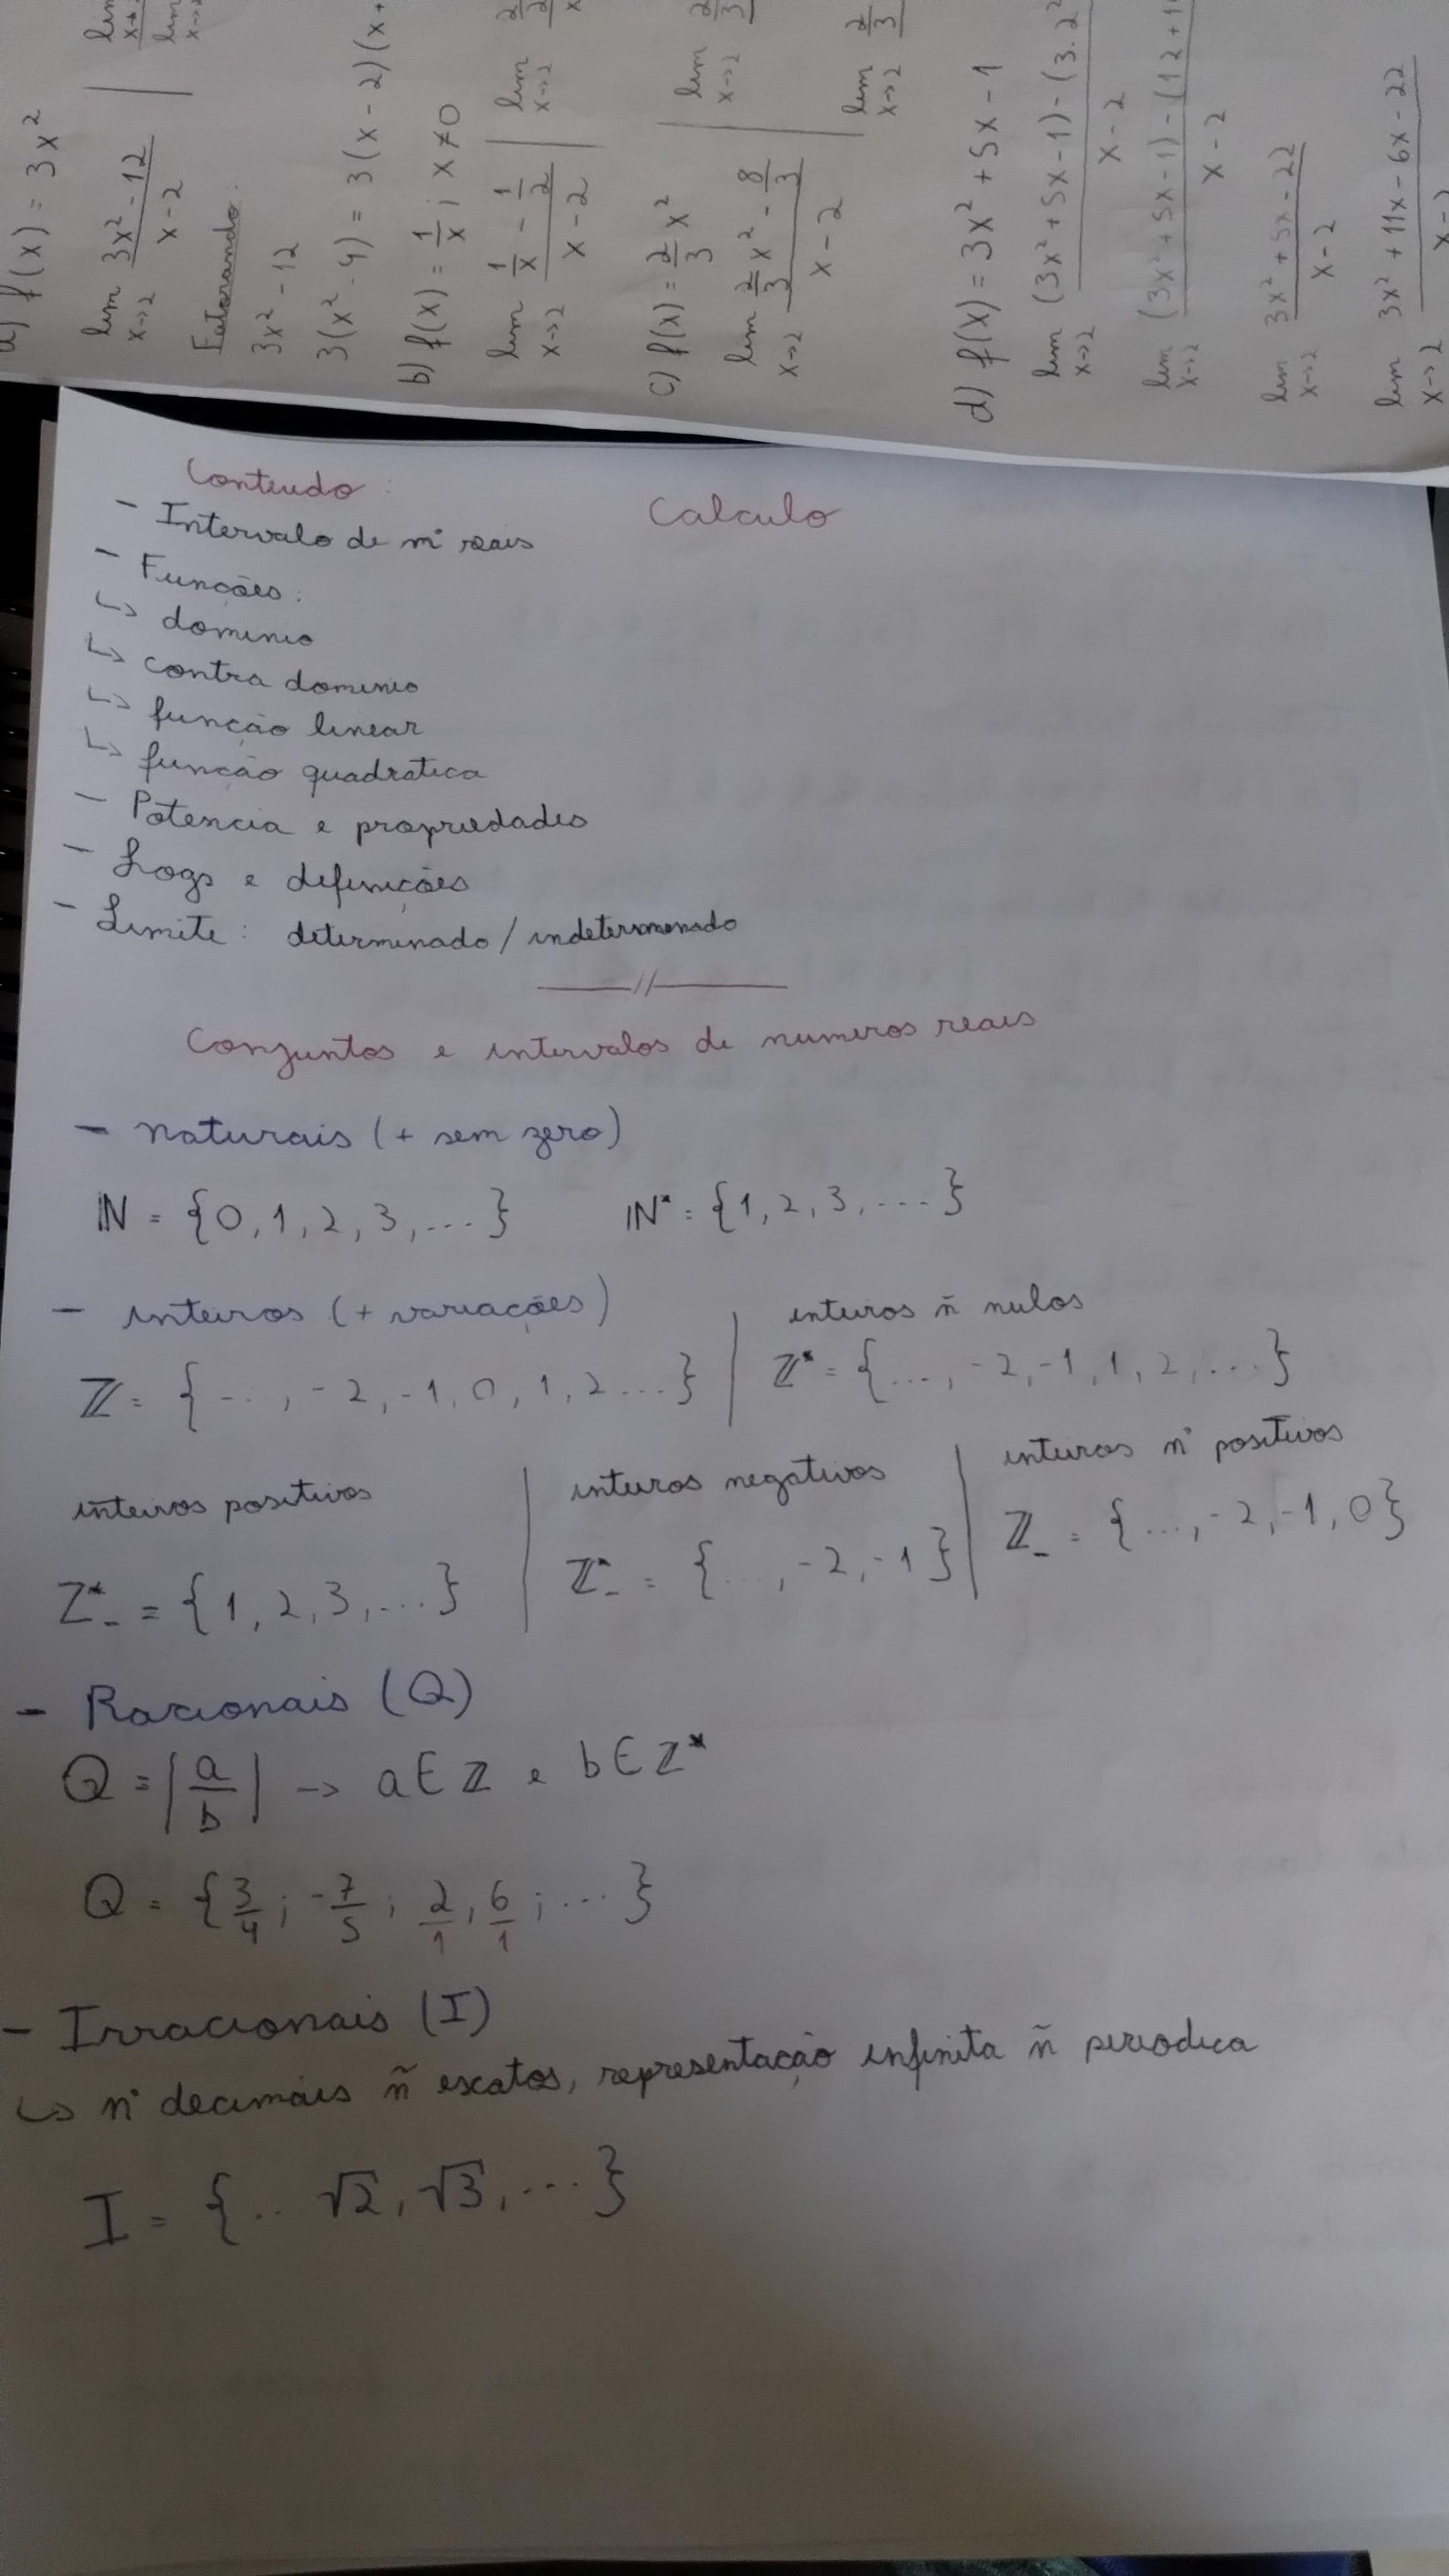 a) f(x) = 3x²
lim 3x² - 12
x→2 x - 2
Fatorando:
3x² - 12
3(x² - 4) = 3(x - 2)(x+
b) f(x) = 1/x ; x ≠ 0
lim 1/x - 1/2 | lim
x→2 x - 2 x→2
c) f(x) = 2/3 x²
lim 2/3 x² - 8/3 | lim
x→2 x - 2 x→2
lim 2/3
x→2
d) f(x) = 3x² + 5x - 1
lim (3x² + 5x - 1) - (3.2²
x→2 x - 2
lim (3x² + 5x - 1) - (12 + 1
x→2 x - 2
lim 3x² + 5x - 22
x→2 x - 2
lim 3x² + 11x - 6x - 22
x→2 x - 2
Conteudo :
Calculo
- Intervalo de nº reais
- Funções :
↳ dominio
↳ contra dominio
↳ função linear
↳ função quadratica
- Potencia e propriedades
- Logs e definições
- Limite : determinado / indeterminado
——//——
Conjuntos e intervalos de numeros reais
- naturais (+ sem zero)
ℕ = {0, 1, 2, 3, ...} ℕ* = {1, 2, 3, ...}
- inteiros (+ variações) | inteiros ñ nulos
ℤ = {..., -2, -1, 0, 1, 2 ...} | ℤ* = {..., -2, -1, 1, 2, ...}
inteiros positivos | inteiros negativos | inteiros nº positivos
Z*₋ = {1, 2, 3, ...} | ℤ*₋ = {..., -2, -1} | ℤ₋ = {..., -2, -1, 0}
- Racionais (Q)
Q = |a/b| → a ∈ ℤ e b ∈ ℤ*
Q = {3/4 ; -7/5 ; 2/1 , 6/1 ; ...}
- Irracionais (I)
↳ nº decimais ñ exatos, representação infinita ñ periodica
I = {... √2, √3, ...}